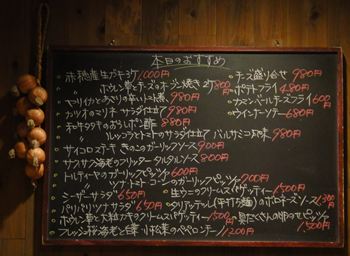 本日のおすすめ
赤穂産生ガキ3ケ 1000円
〃 ホウレン草とチーズのオーブン焼き 2ケ 800円
ヤリイカとあさりの辛いトマト煮 980円
カツオのミソネサラダ仕立て 980円
和牛タタキのおろしポン酢 880円
〃 ルッコラとトマトのサラダ仕立て バルサミコ風味 980円
サイコロステーキ きのこのガーリックソース 900円
サクサク海老のフリッター タルタルソース 800円
トルティーヤのガーリックピッツァ 600円
〃 ツナトマトコーンのガーリックピッツァ 700円
シーザーサラダ 大 650円
パリパリサラダ 650円
ホウレン草と大粒カキのクリームスパゲッティー 1500円
フレッシュ桜海老と 小松菜のペペロンチーノ 1200円
・チーズ盛り合せ 980円
・ポテトフライ 480円
・カマンベールチーズフライ 600円
・ウインナーソテー 680円
・生ウニのクリームスパゲッティー 1500円
・タリアテッレ(平打ち麺)のボロネーズソース 1300円
・具だくさんの のピッツァ 1500円